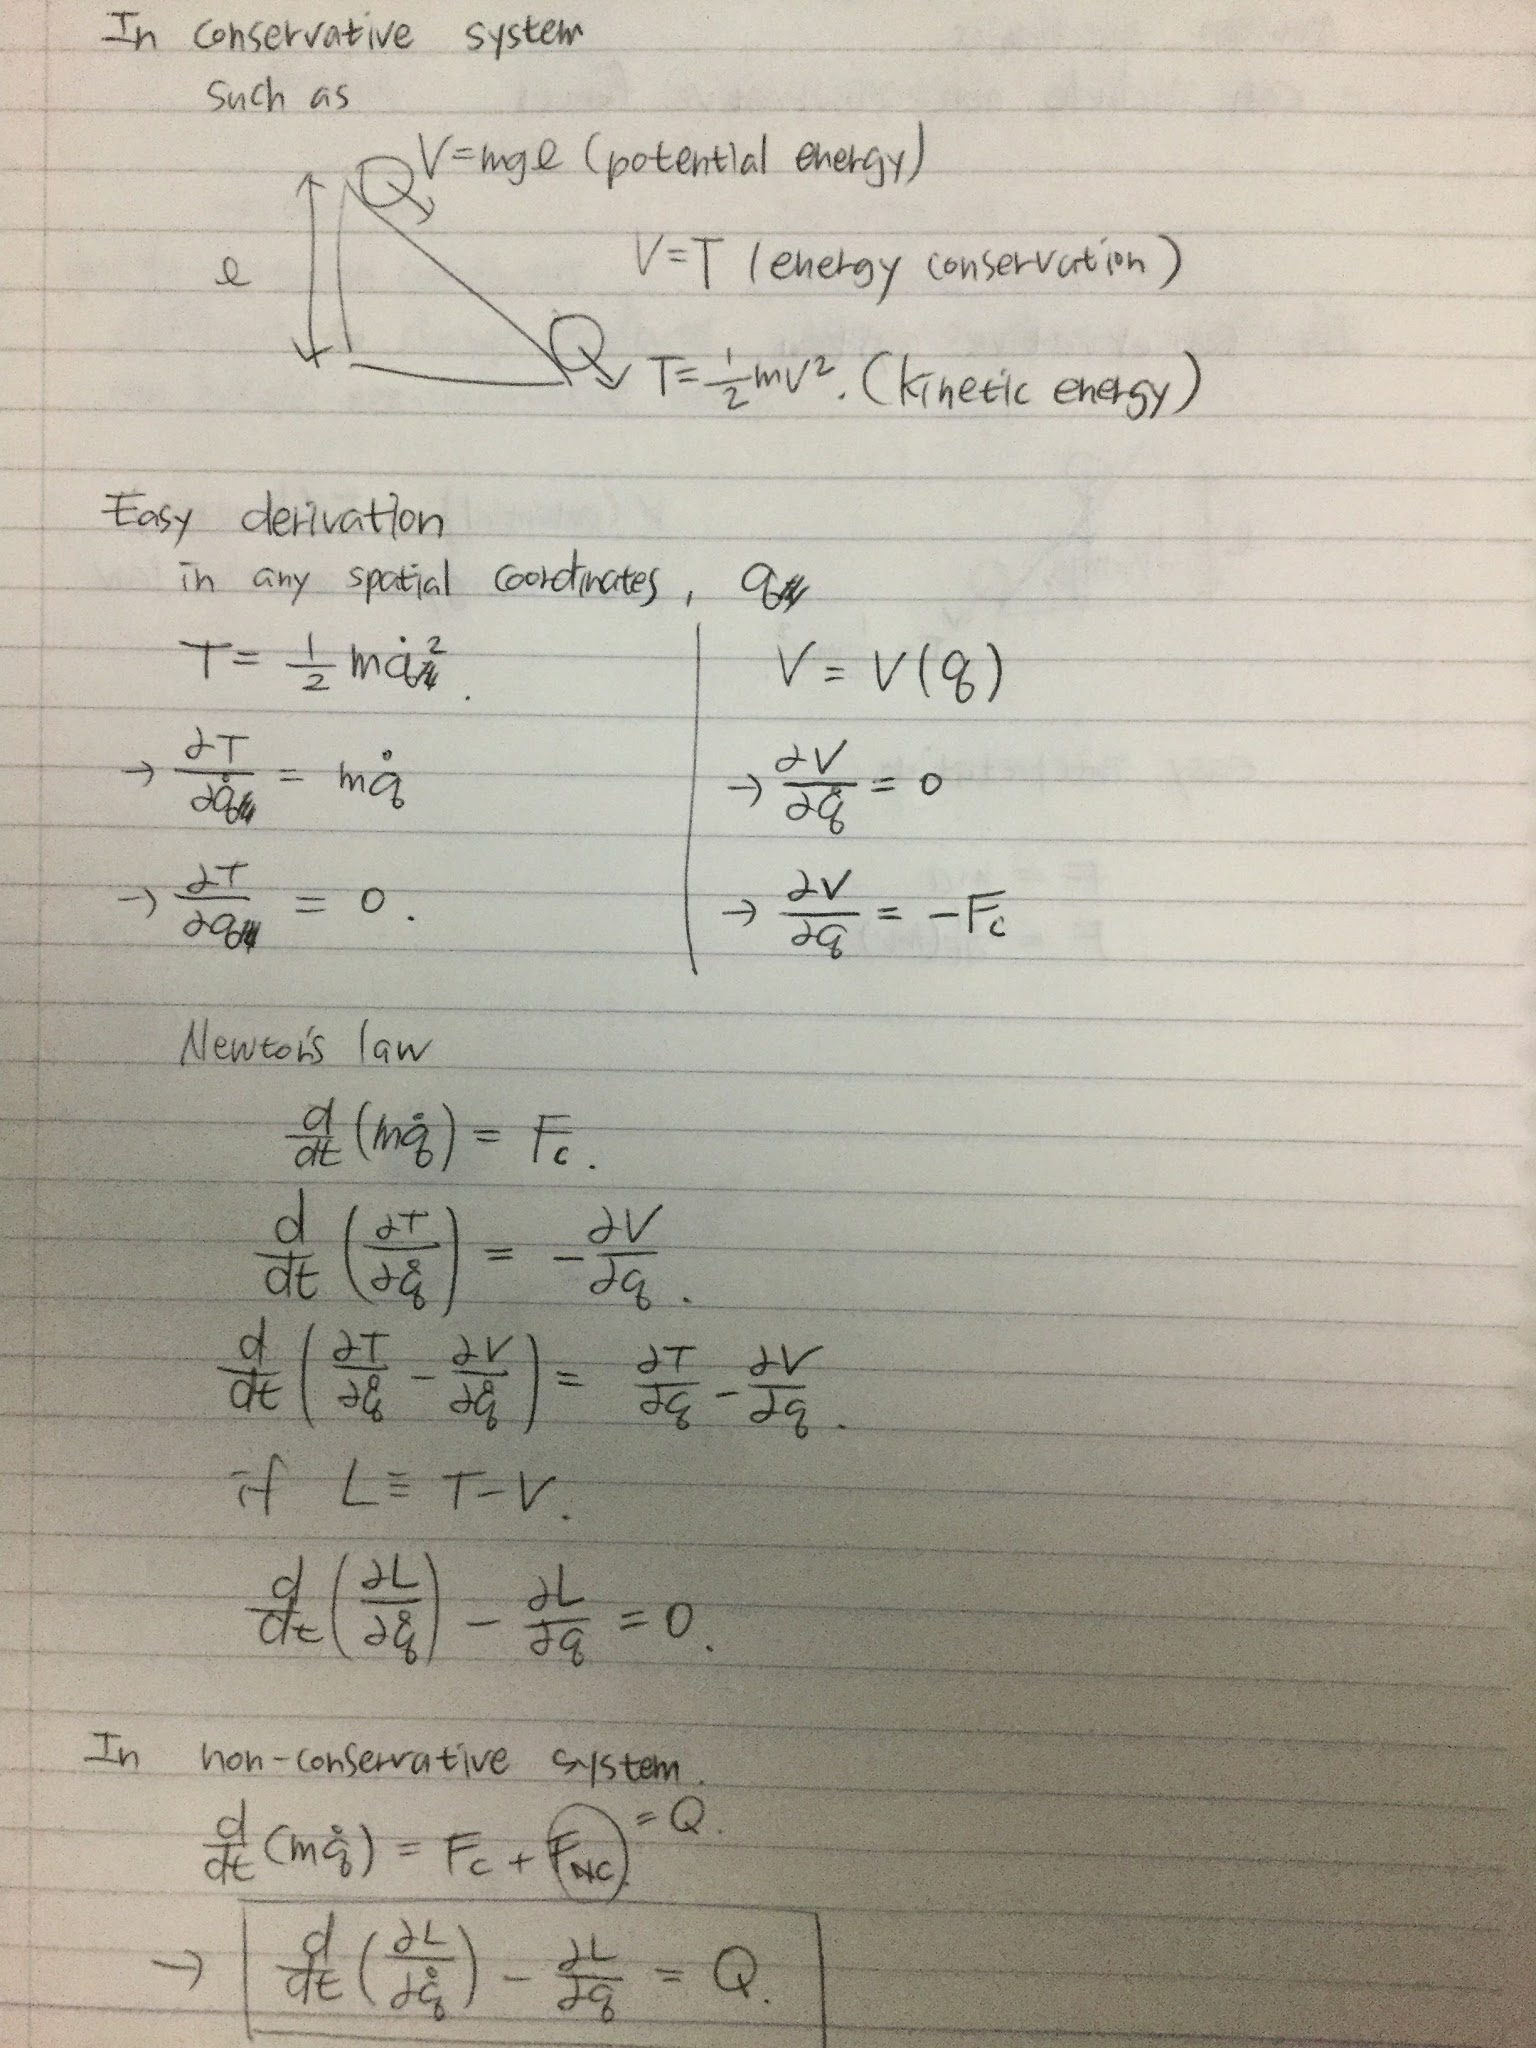 In conservative system
such as
V=mgl (potential energy)
l
V=T (energy conservation)
T=1/2 mv². (kinetic energy)
Easy derivation
in any spatial coordinates, q
T = 1/2 mq̇².
V = V(q)
→ ∂T/∂q̇ = mq̇
→ ∂V/∂q̇ = 0
→ ∂T/∂q = 0.
→ ∂V/∂q = -Fc
Newton's law
d/dt (mq̇) = Fc.
d/dt (∂T/∂q̇) = -∂V/∂q.
d/dt (∂T/∂q̇ - ∂V/∂q̇) = ∂T/∂q - ∂V/∂q.
if L ≡ T-V.
d/dt (∂L/∂q̇) - ∂L/∂q = 0.
In non-conservative system.
d/dt (mq̇) = Fc + FNC. = Q.
→ d/dt (∂L/∂q̇) - ∂L/∂q = Q.